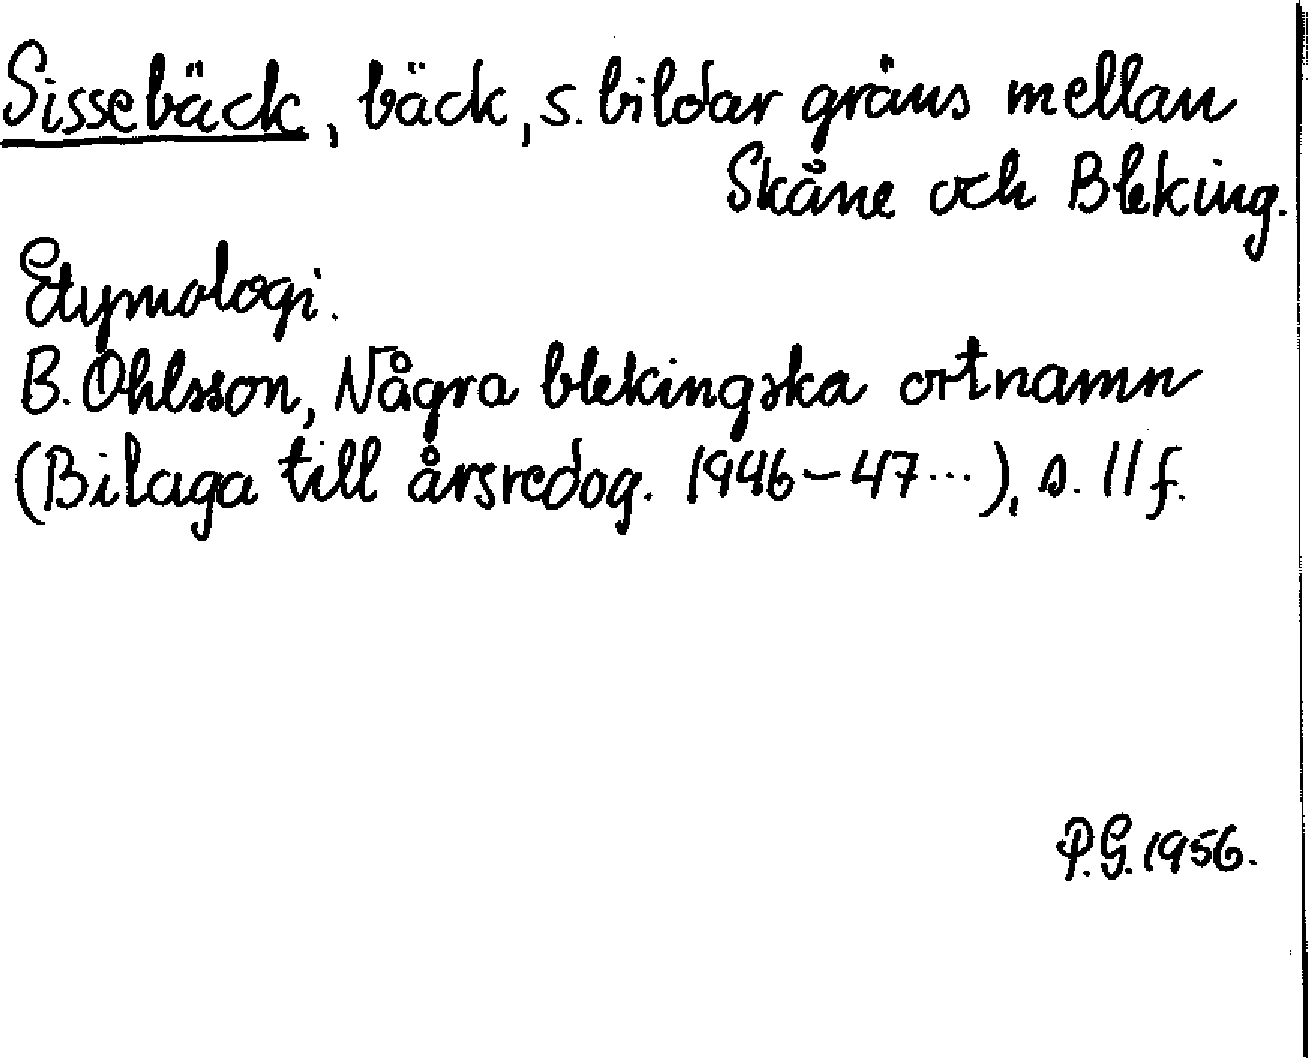 Sissebäck, bäck, s. bildar gräns mellan
Skåne och Bleking.
Etymologi.
B. Ohlsson, Några blekingska ortnamn
(Bilaga till årsredog. 1946–47...), s. 11 f.
P.G. 1956.